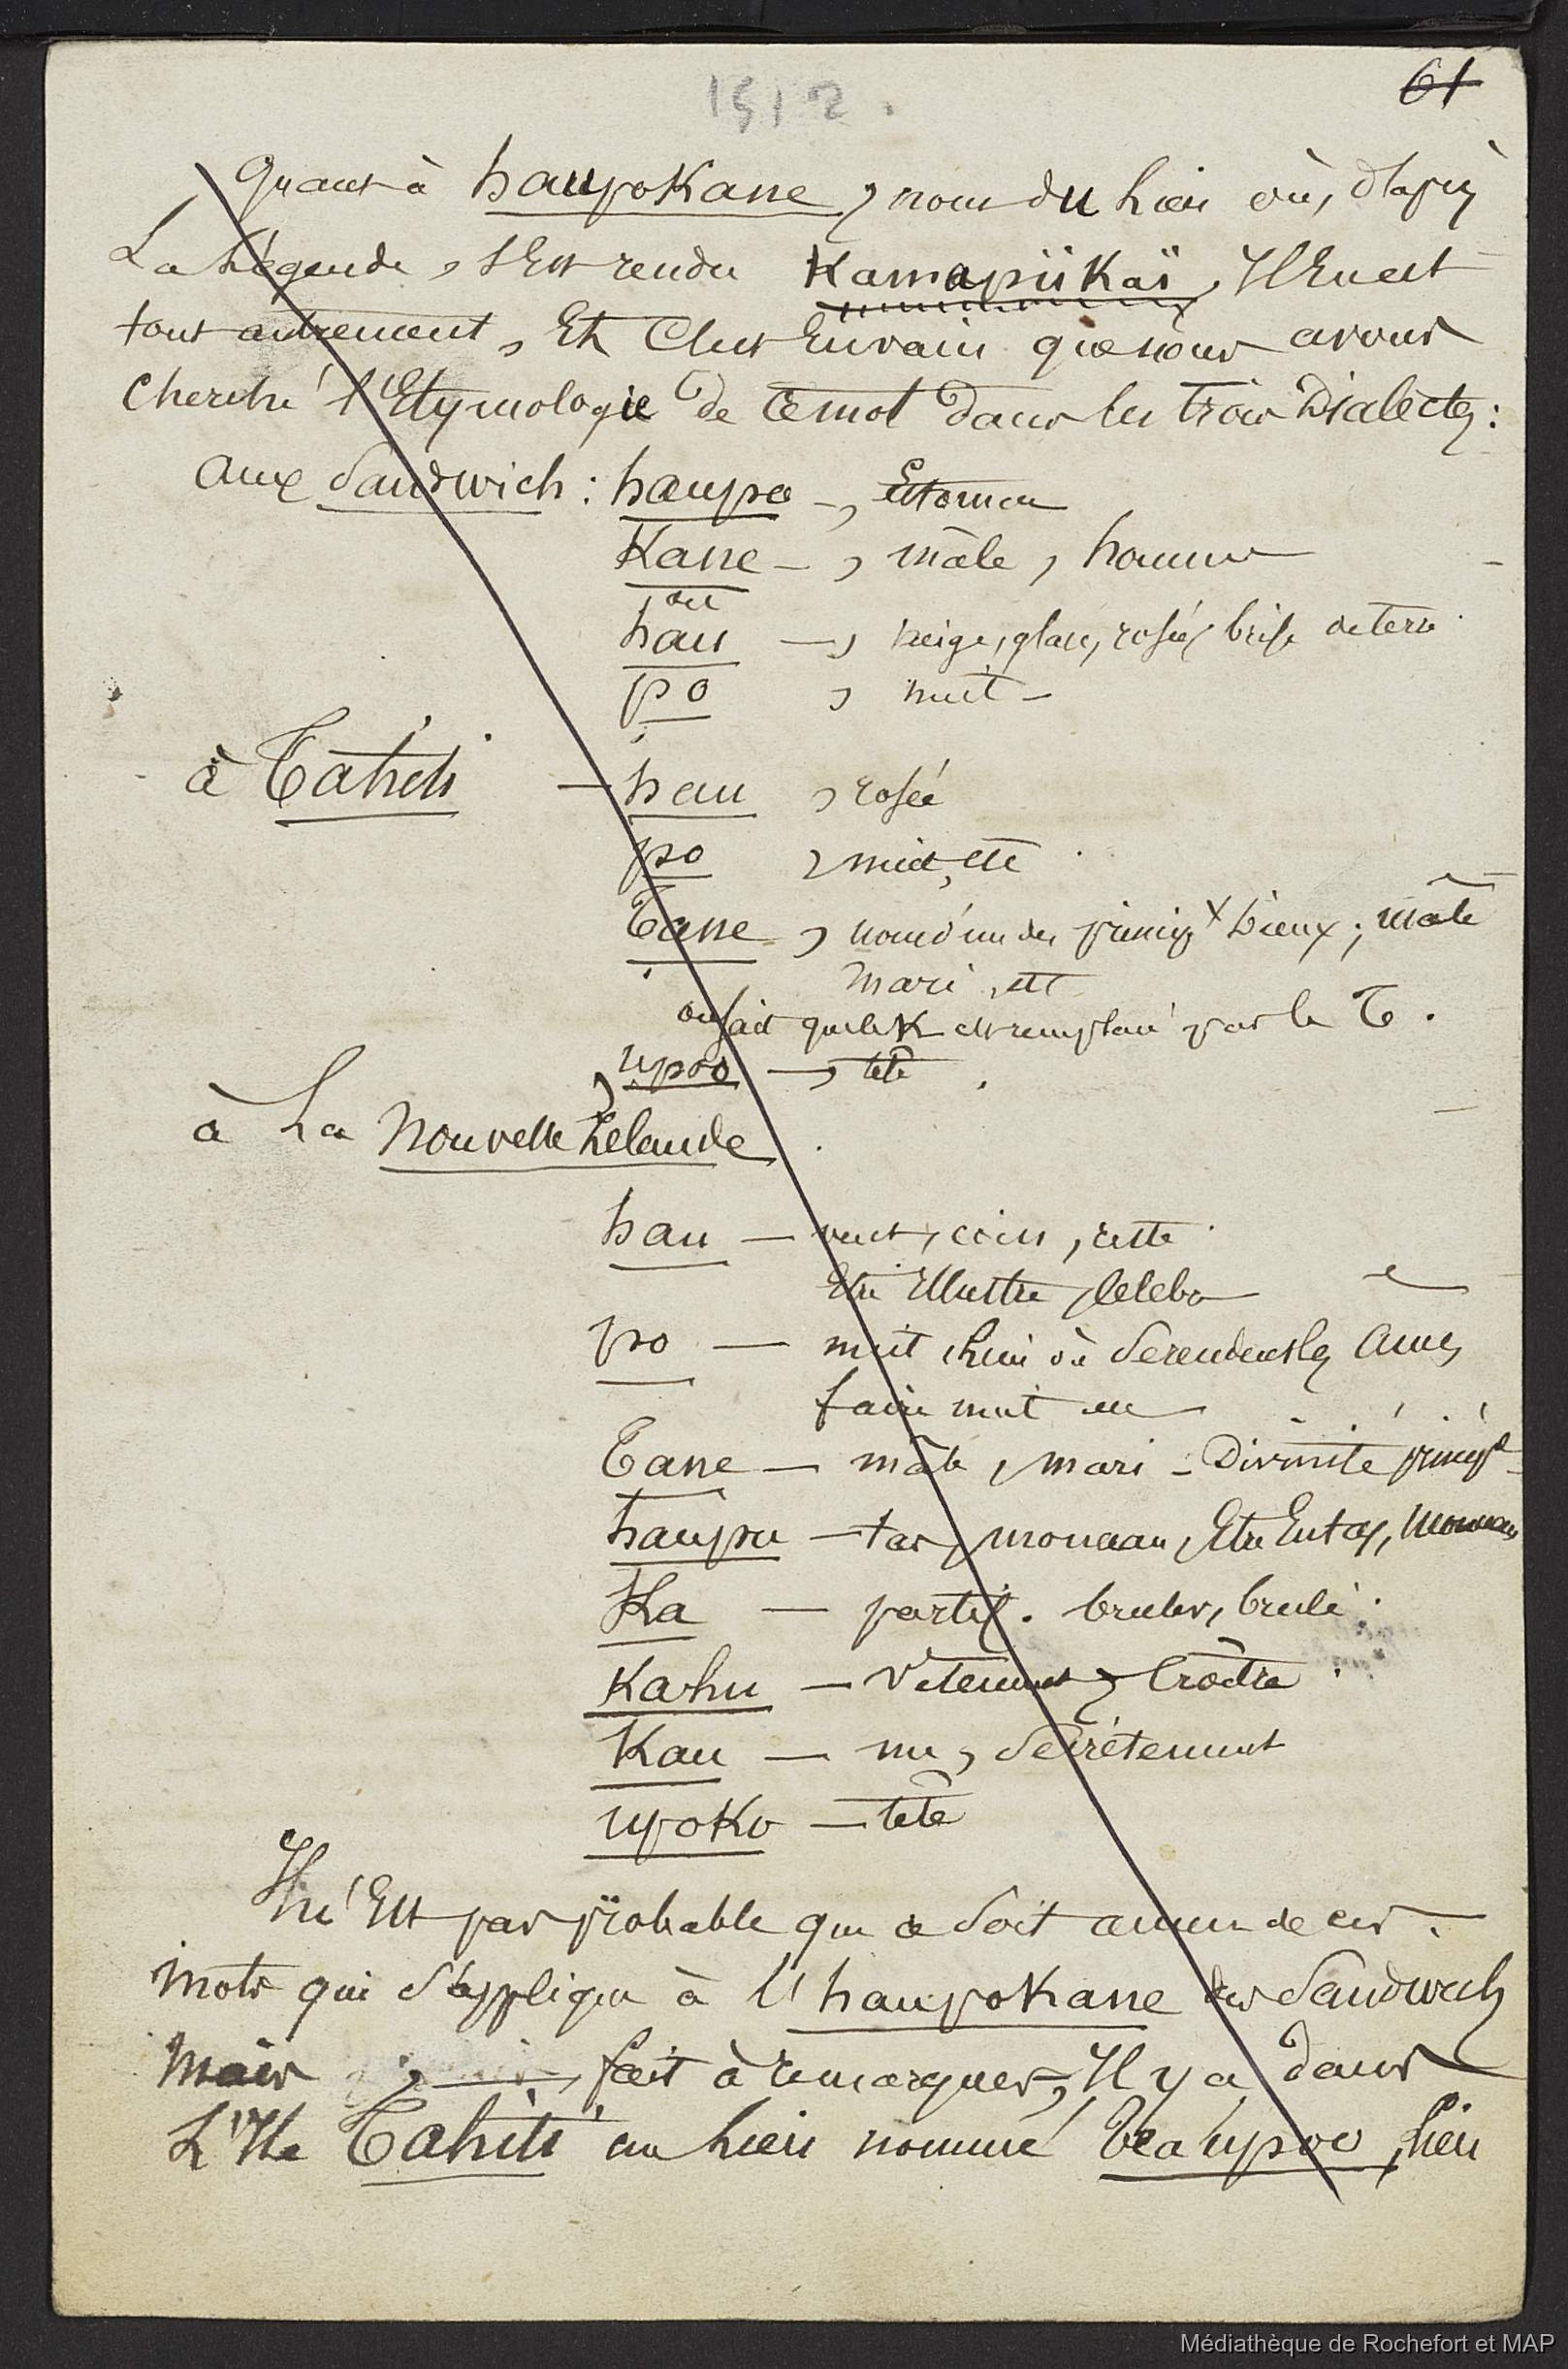 1512.
61
Quant à haupokane, nom du lieu où, d'après
La Légende, s'Est rendu Kamapiikaï, Il En est
tout autrement, Et C'est En vain que nous avons
cherché l'Etymologie de ce mot dans les trois Dialectes :
aux Sandwich : haupo -, Estomac
Kane -, mâle, homme
ou
hau -, neige, glace, rosée, brise de terre
po , nuit -
à Tahiti - hau , rosée
po , nuit, etc
Tane , nom d'un des princip.x Dieux ; mâle
mari, etc
on sait que le K est remplacé par le T.
upoo -, tête
à La Nouvelle Zelande
hau - vent, , reste
Etre Illustre, celebre
po - nuit, lieu où se rendent les âmes
faire nuit
Tane - mâle, mari - Divinité princip.le
haupu - tas, monceau, Etre Entassé, monceau
Ka - partic. bruler, brulé
Kahu - vêtement, croître
Kau - nu, secrètement
upoko - tête
Il n'Est pas probable que ce soit aucun de ces
mots qui s'applique à l'haupokane des Sandwich
mais , fait à remarquer, Il y a dans
L'Ile Tahiti un lieu nommé Veaupoo, lieu
Médiathèque de Rochefort et MAP